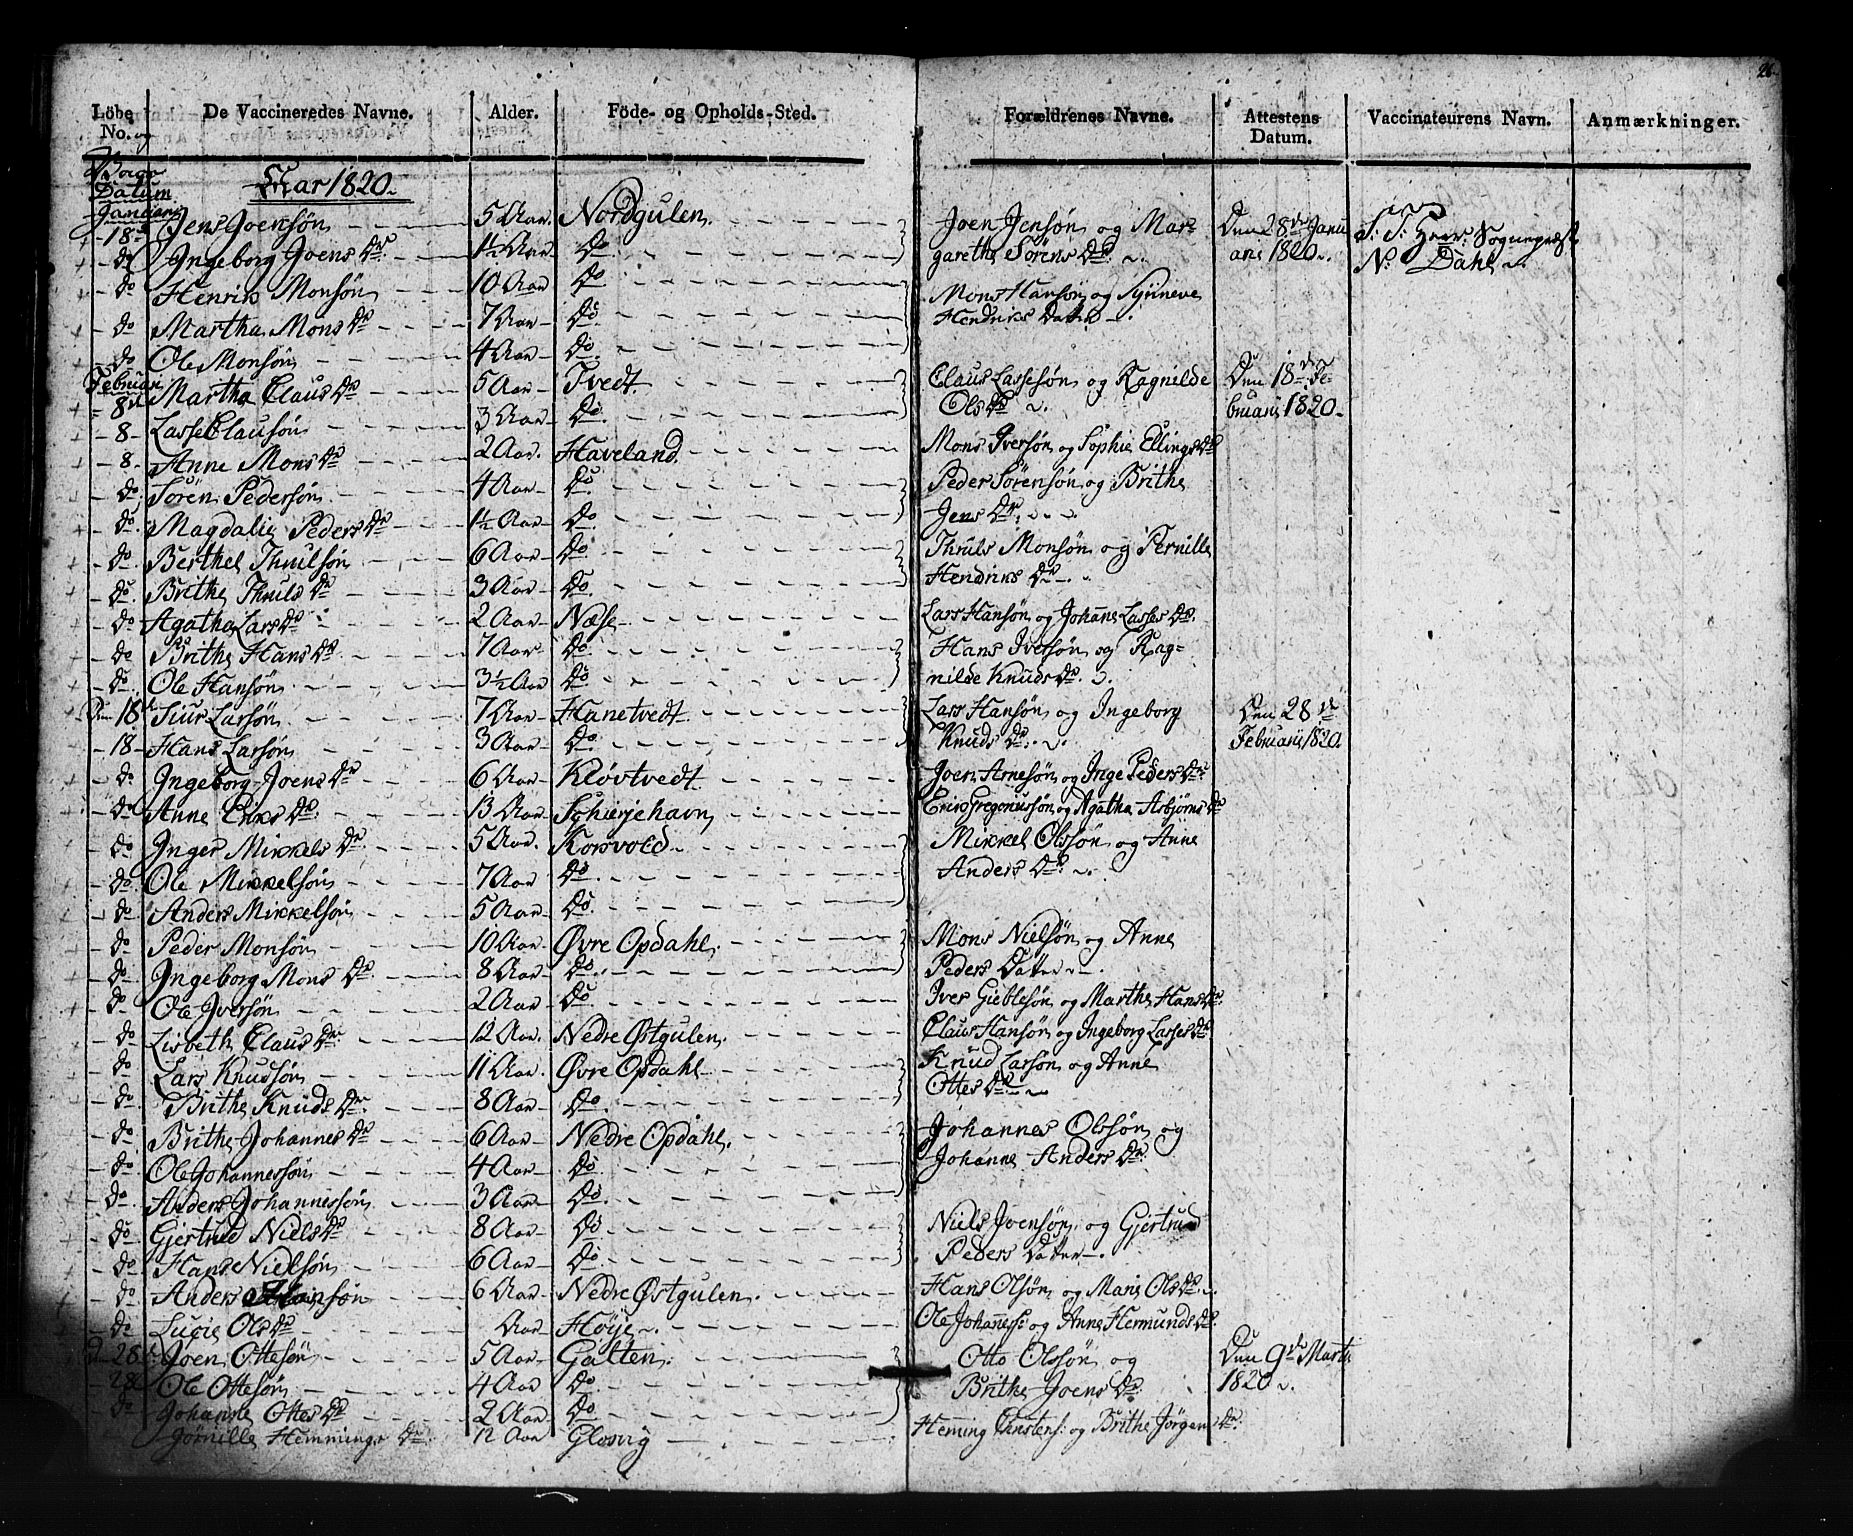 26
Löbe No. og Vacc: Datum | De Vaccineredes Navne. | Alder. | Föde- og Opholds-Sted. | Forældrenes Navne. | Attestens Datum. | Vaccinateurens Navn. | Anmærkninger.
Aar 1820
Januarii
18de Jens Joensøn 5 Aar Nordgulen. Joen Jensøn og Mar= Den 28de Janu S: T: Herr: Sognepræst
do Ingeborg Joens Dr 1½ Aar Do grethe Sørens Dr arii 1820 N: Dahl
do Henrik Monsøn 10 Aar Do Mons Hansøn og Synneve
do Martha Mons Dr 7 Aar Do Hendriks Datter
do Ole Monsøn 4 Aar Do
Februarii
8de Martha Claus Dr 5 Aar Tvedt Claus Lassesøn og Ragnilde Den 18de Fe=
8 Lasse Clausøn 3 Aar Do Ols Dr bruarii 1820
8 Anne Mons Dr 2 Aar Haveland Mons Iversøn og Sophie Ellings Dr
do Søren Pedersøn 4 Aar Do Peder Sørensøn og Brithe
do Magdali Peders Dr 1½ Aar Do Jens Dr
do Berthel Thrulsøn 6 Aar Do Thruls Monsøn og Pernille
do Brithe Thruls Dr 3 Aar Do Hendriks Dr
do Agatha Lars Dr 2 Aar Næse Lars Hansøn og Johane Lasses Dr
do Brithe Hans Dr 7 Aar Do Hans Iversøn og Rag=
do Ole Hansøn 3½ Aar Do nilde Knuds Dr
Den 18de Siur Larsøn 7 Aar Hanetvedt Lars Hansøn og Ingeborg Den 28de
18 Hans Larsøn 3 Aar Do Knuds Dr Februarii 1820
do Ingeborg Joens Dr 6 Aar Kløvtvedt Joen Arnesøn og Inge Peders Dr
do Anne Eriks Dr 13 Aar Schierjehavn Erik Gregoriussøn og Agatha Asbjørns Dr
do Inger Mikkels Dr 5 Aar Korsvold Mikkel Olssøn og Anne
do Ole Mikkelsøn 7 Aar Do Anders Dr
do Anders Mikkelsøn 5 Aar Do
do Peder Monsøn 10 Aar Øvre Opdahl Mons Nielsøn og Anne
do Ingeborg Mons Dr 8 Aar Do Peders Datter
do Ole Iversøn 2 Aar Do Iver Gieblesøn og Marthe Hans Dr
do Lisbeth Claus Dr 12 Aar Nedre Østgulen Claus Hansøn og Ingeborg Lasses Dr
do Lars Knudsøn 11 Aar Øvre Opdahl Knud Larsøn og Anne
do Brithe Knuds Dr 8 Aar Do Ottes Dr
do Brithe Johannes Dr 6 Aar Nedre Opdahl Johannes Olssøn og
do Ole Johannessøn 4 Aar Do Johanne Anders Dr
do Anders Johannessøn 3 Aar Do
do Gjertrud Niels Dr 8 Aar Do Niels Joensøn og Gjertrud
do Hans Nielsøn 6 Aar Do Peders Datter
do Anders Hansøn 6 Aar Nedre Østgulen Hans Olsøn og Marie Ols Dr
do Lucie Ols Dr Aar Høije Ole Johaness: og Anne Hermunds Dr
D 28 Joen Ottesøn 5 Aar Galten Otto Olssøn og Den 9de Marti
28 Ole Ottesøn 4 Aar Do Brithe Joens Dr 1820
do Johanne Ottes Dr 2 Aar Do
Jørnille Hemmings Dr 12 Aar Glosvig Heming Christens: og Brithe Jørgens Dr